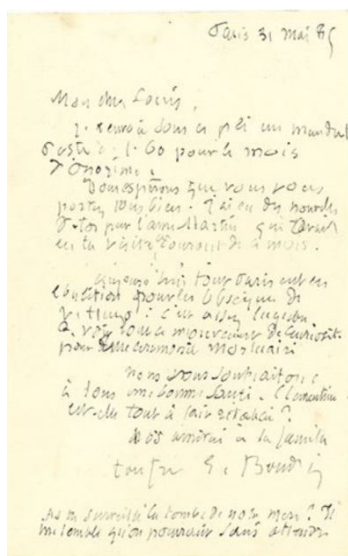 Paris 31 mai 85
Mon cher Louis,
Je t'envoie sous ce pli un mandat
poste de f. 60 pour le mois
Nous espérons que vous vous
portez tous bien. J'ai eu des nouvelles
de toi par l'ami Martin qui
aujourd'hui tout Paris est en
pour les obsèques de
V. Hugo : c'est assez
mouvement de curiosité
pour une cérémonie mortuaire
nous vous souhaitons
à tous une bonne santé. Clementine
est-elle tout à fait rétablie ?
Nos amitiés à la famille
ton frère E. Boudin
As tu surveillé la tombe de notre mère ? Il
me semble qu'on pourrait sans attendre